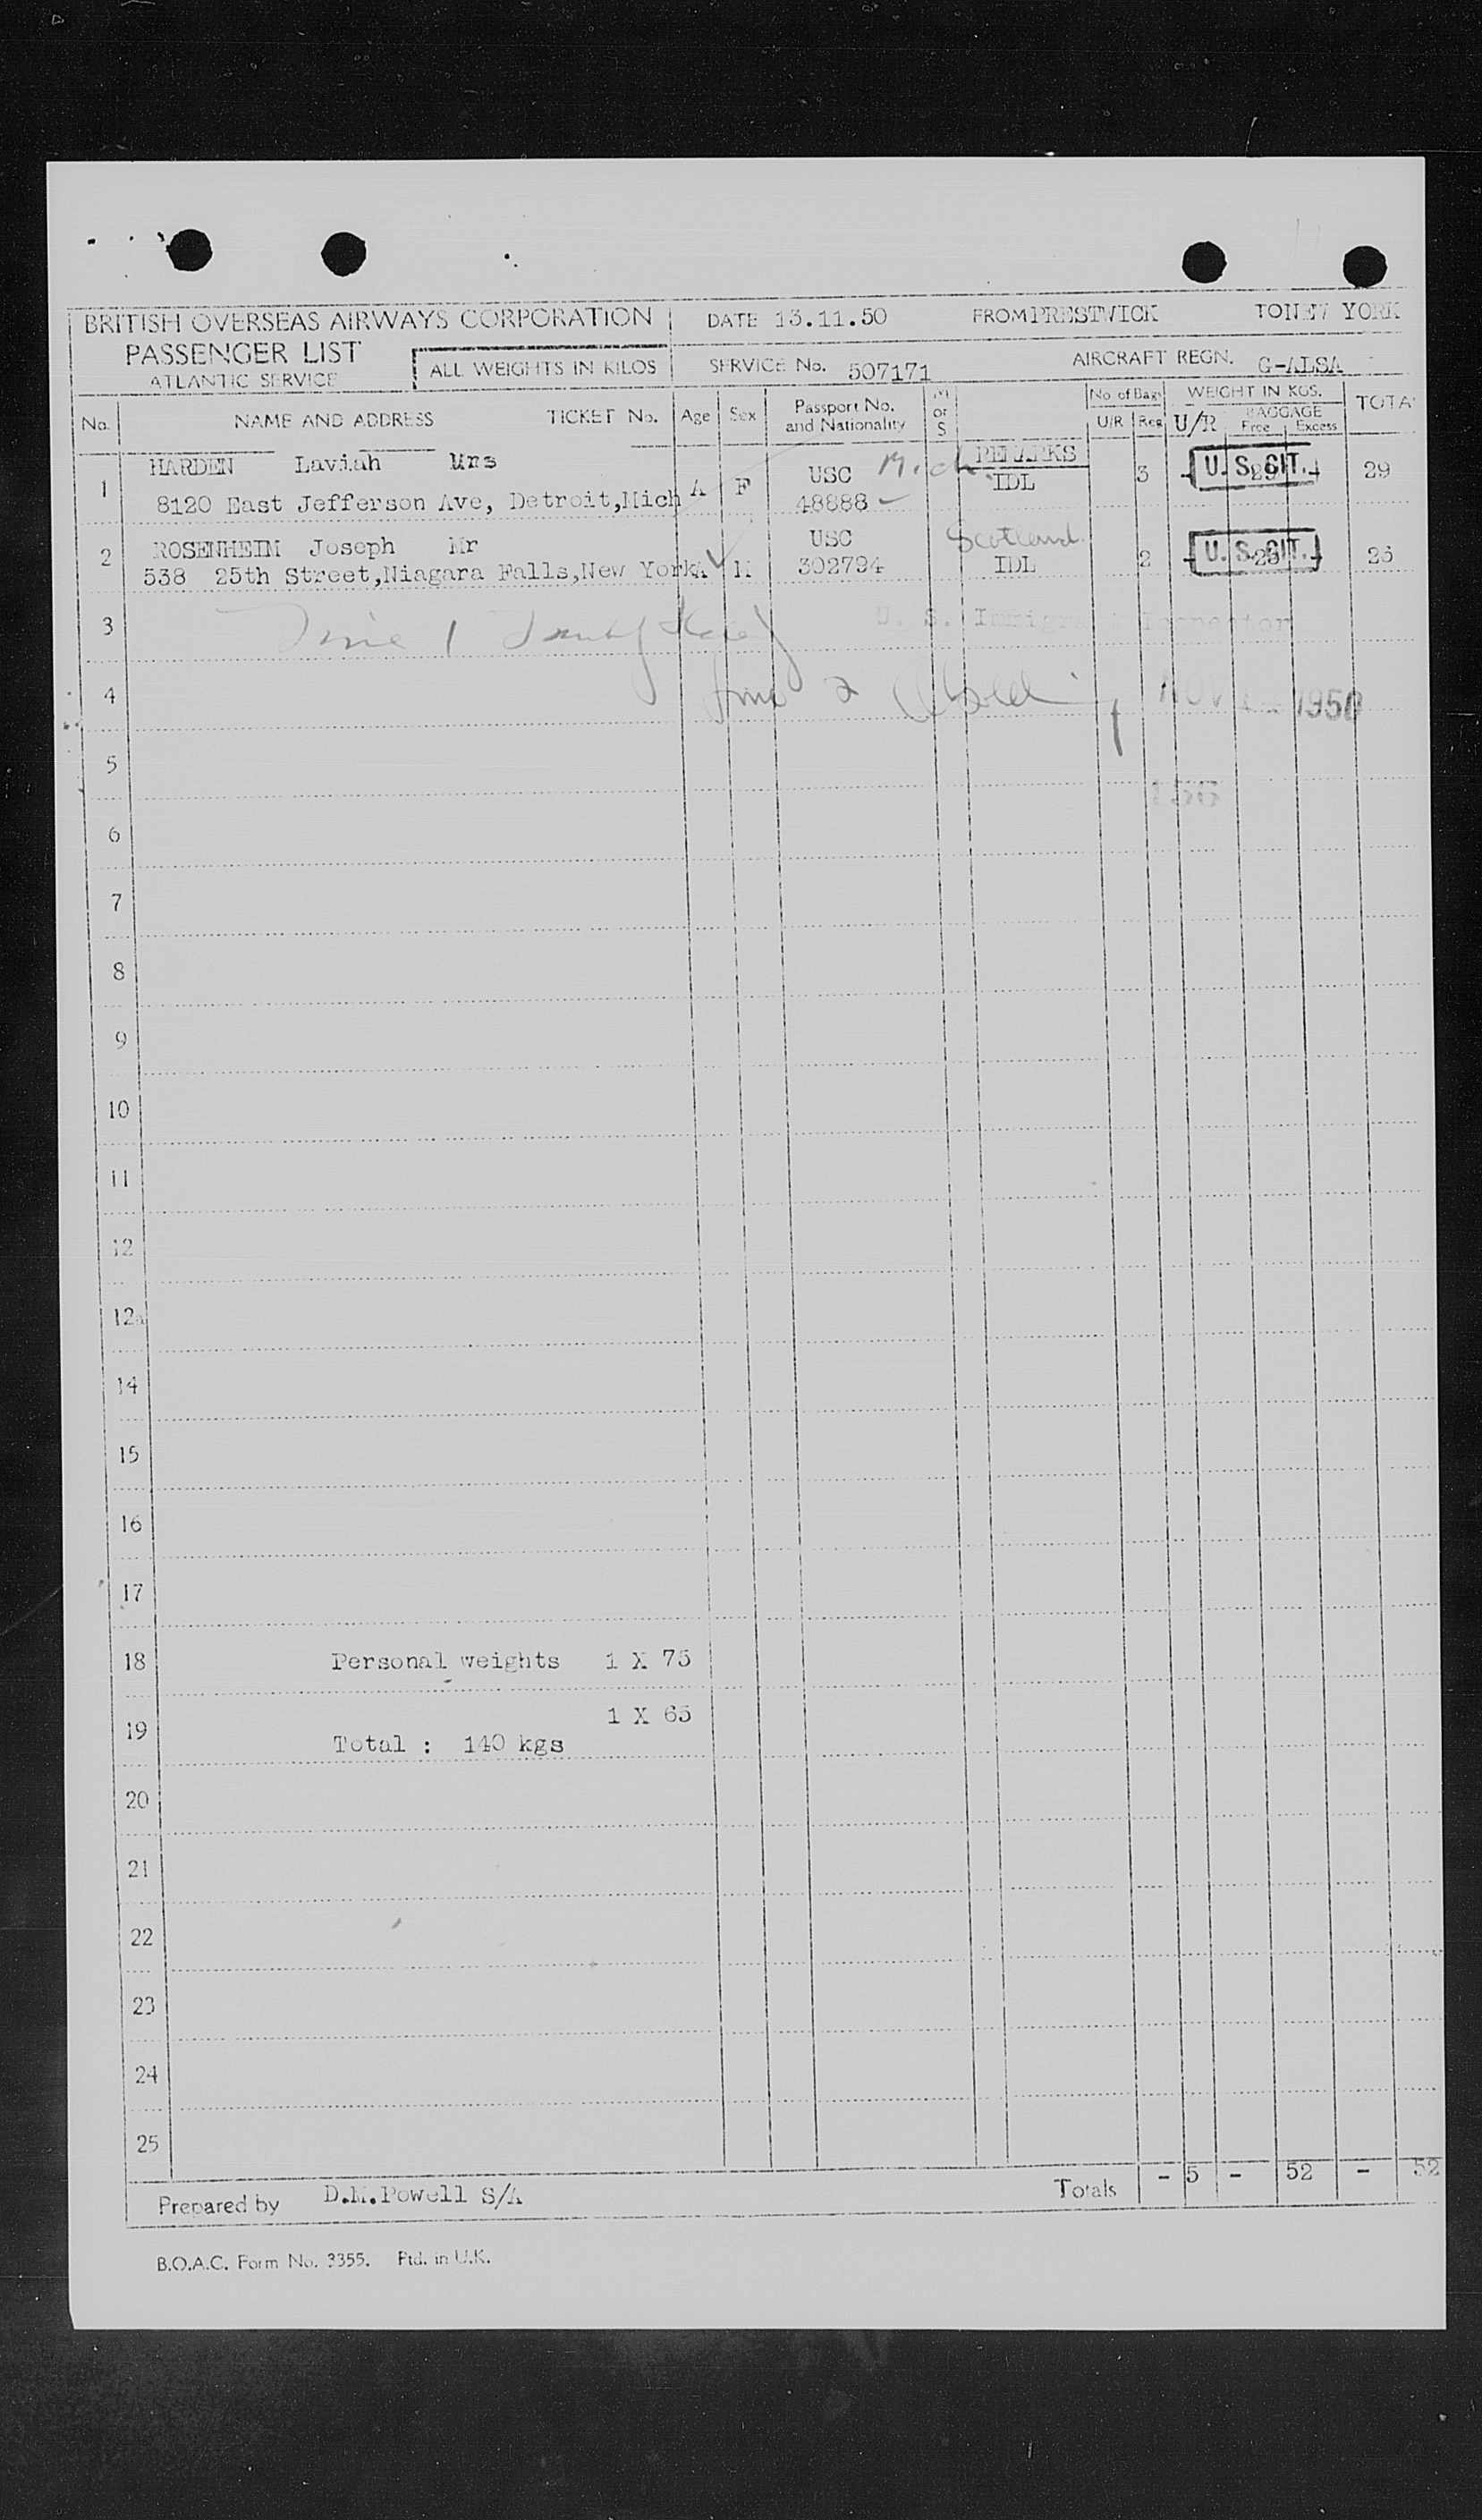 BRITISH OVERSEAS AIRWAYS CORPORATION DATE 13.11.50 FROM PRESTWICK TO NEW YORK
PASSENGER LIST
ATLANTIC SERVICE ALL WEIGHTS IN KILOS SERVICE No. 507171 AIRCRAFT REGN. G-ALSA
No. NAME AND ADDRESS TICKET No. Age Sex Passport No. and Nationality M or S REMARKS No of Bags U/R Reg WEIGHT IN KGS. U/R BAGGAGE Free Excess TOTAL
1 HARDEN Laviah Mrs USC Mich. 3 U. S. CIT. 29
8120 East Jefferson Ave, Detroit,Mich A F 48888 IDL
2 ROSENHEIM Joseph Mr USC Scotland 2 U. S. CIT.
538 25th Street,Niagara Falls,New York A M 302794 IDL
3 U. S. Immigrant Inspector
4 NOV 1950
5
6
7
8
9
10
11
12
12a
14
15
16
17
18 Personal weights 1 X 75
1 X 65
19
Total : 140 kgs
20
21
22
23
24
25
Totals - 5 - 52 - 52
Prepared by D.M.Powell S/A
B.O.A.C. Form No. 3355. Ptd. in U.K.